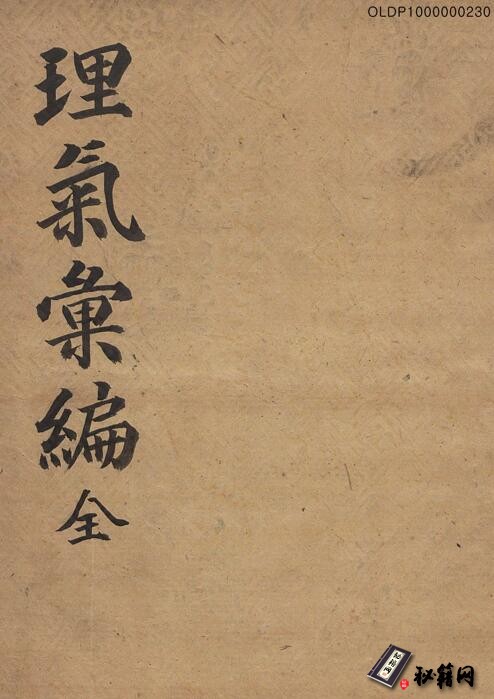 OLDP1000000230
理氣彙編全
秘籍网